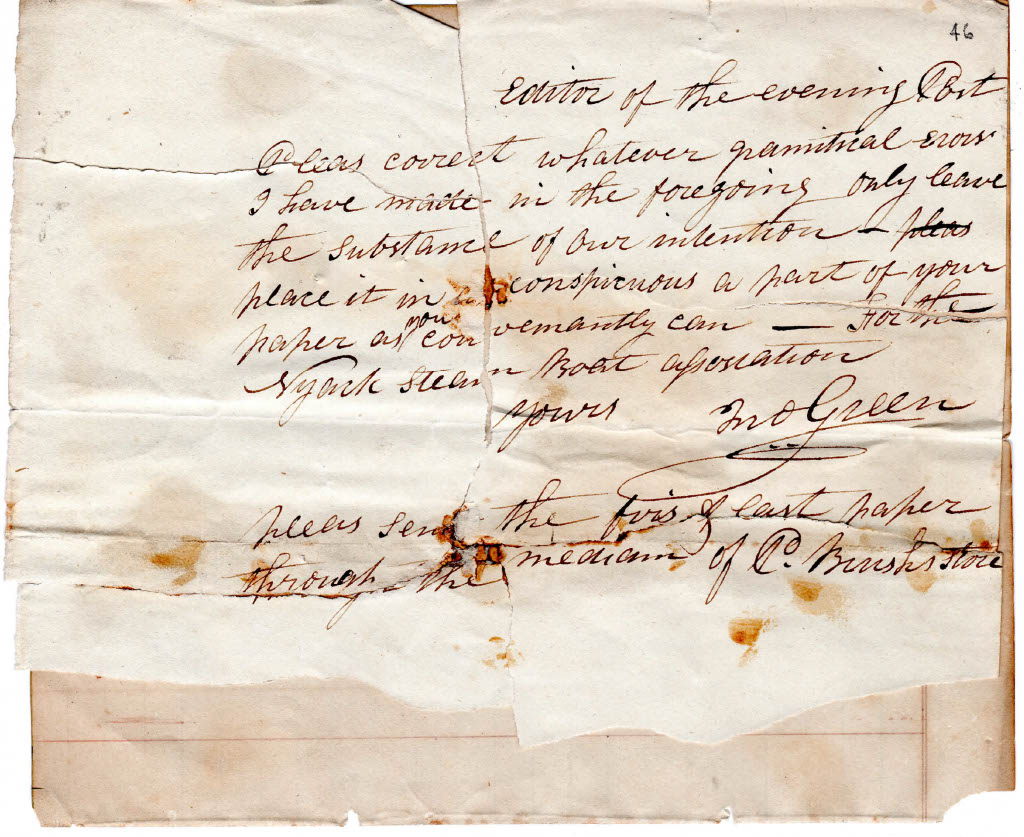 46
Editor of the evening Post
Pleas correct whatever gramitical erors
I have made in the foregoing only leave
the substance of our intention – pleas
place it in as conspicuous a part of your
paper as you convemantly can — For the
Nyack Steam Boat assosiation
yours Jno Green
pleas send the firs & last paper
through the mediam of P. Brushs store